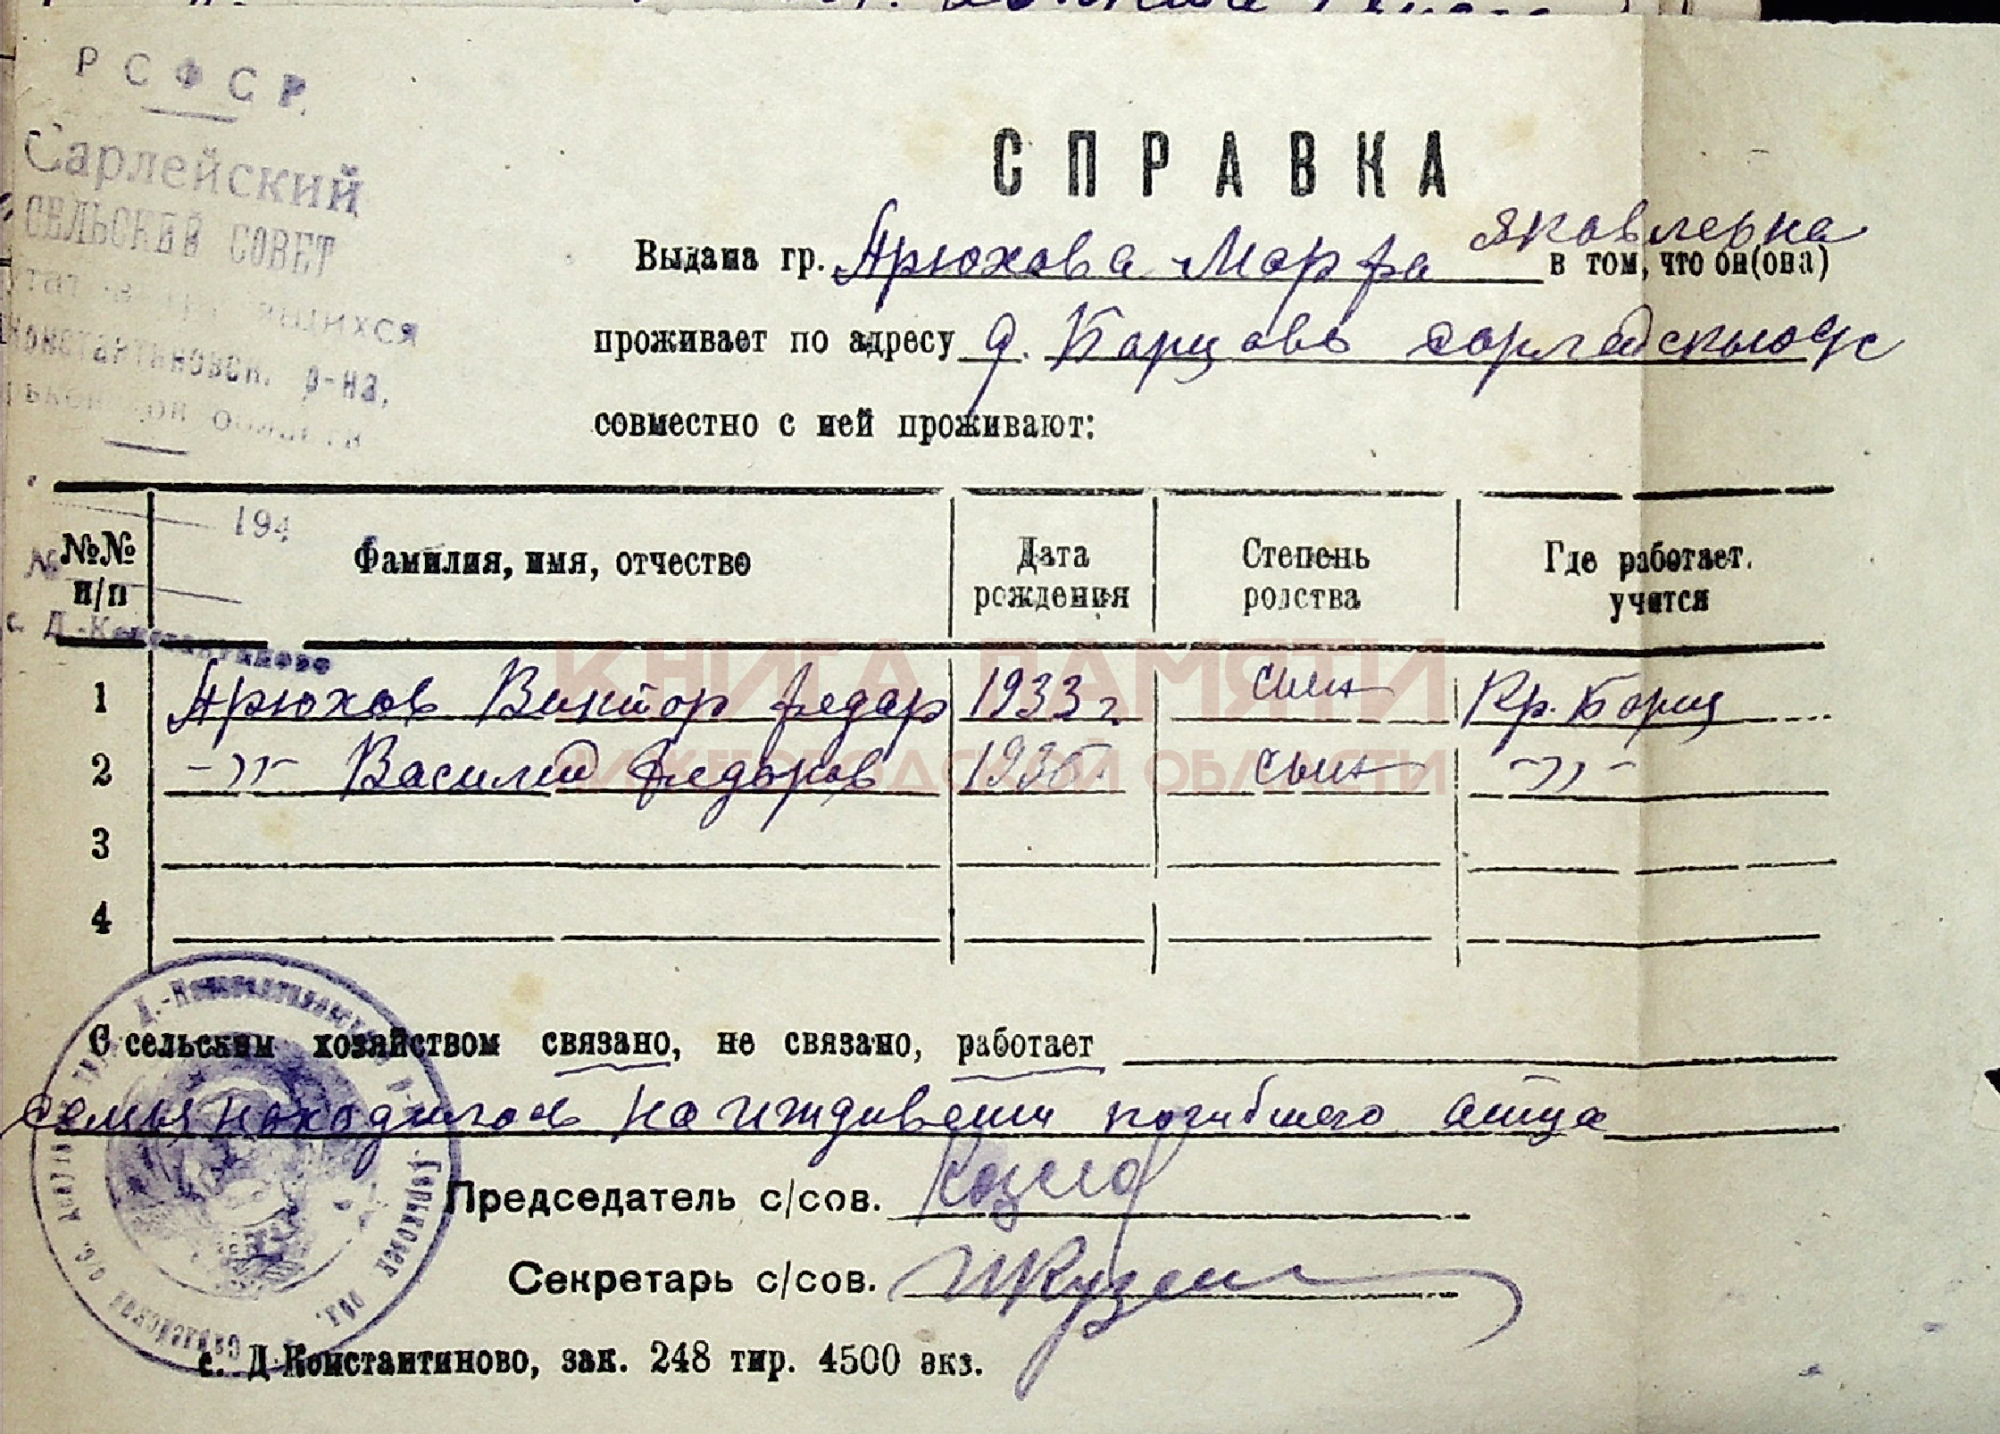 Р С Ф С Р.
Сарлейский
СЕЛЬСКИЙ СОВЕТ
Константиновск. р-на,
области
194
№
с. Д.-Константиново
СПРАВКА
Выдана гр. Арюхова Марфа Яковлевна в том, что он(она)
проживает по адресу д. Борцово
совместно с ней проживают:
№№ п/п Фамилия, имя, отчество Дата рождения Степень родства Где работает. учится
1 Арюхов Виктор Федар 1933 г сын Кр. Борц
2 -"- Василий Федоров сын -"-
3
4
С сельским хозяйством связано, не связано, работает
семья находилась на иждивении погибшего отца
Председатель с/сов.
Секретарь с/сов.
с. Д-Константиново, зак. 248 тир. 4500 экз.
КНИГА ПАМЯТИ
НИЖЕГОРОДСКОЙ ОБЛАСТИ